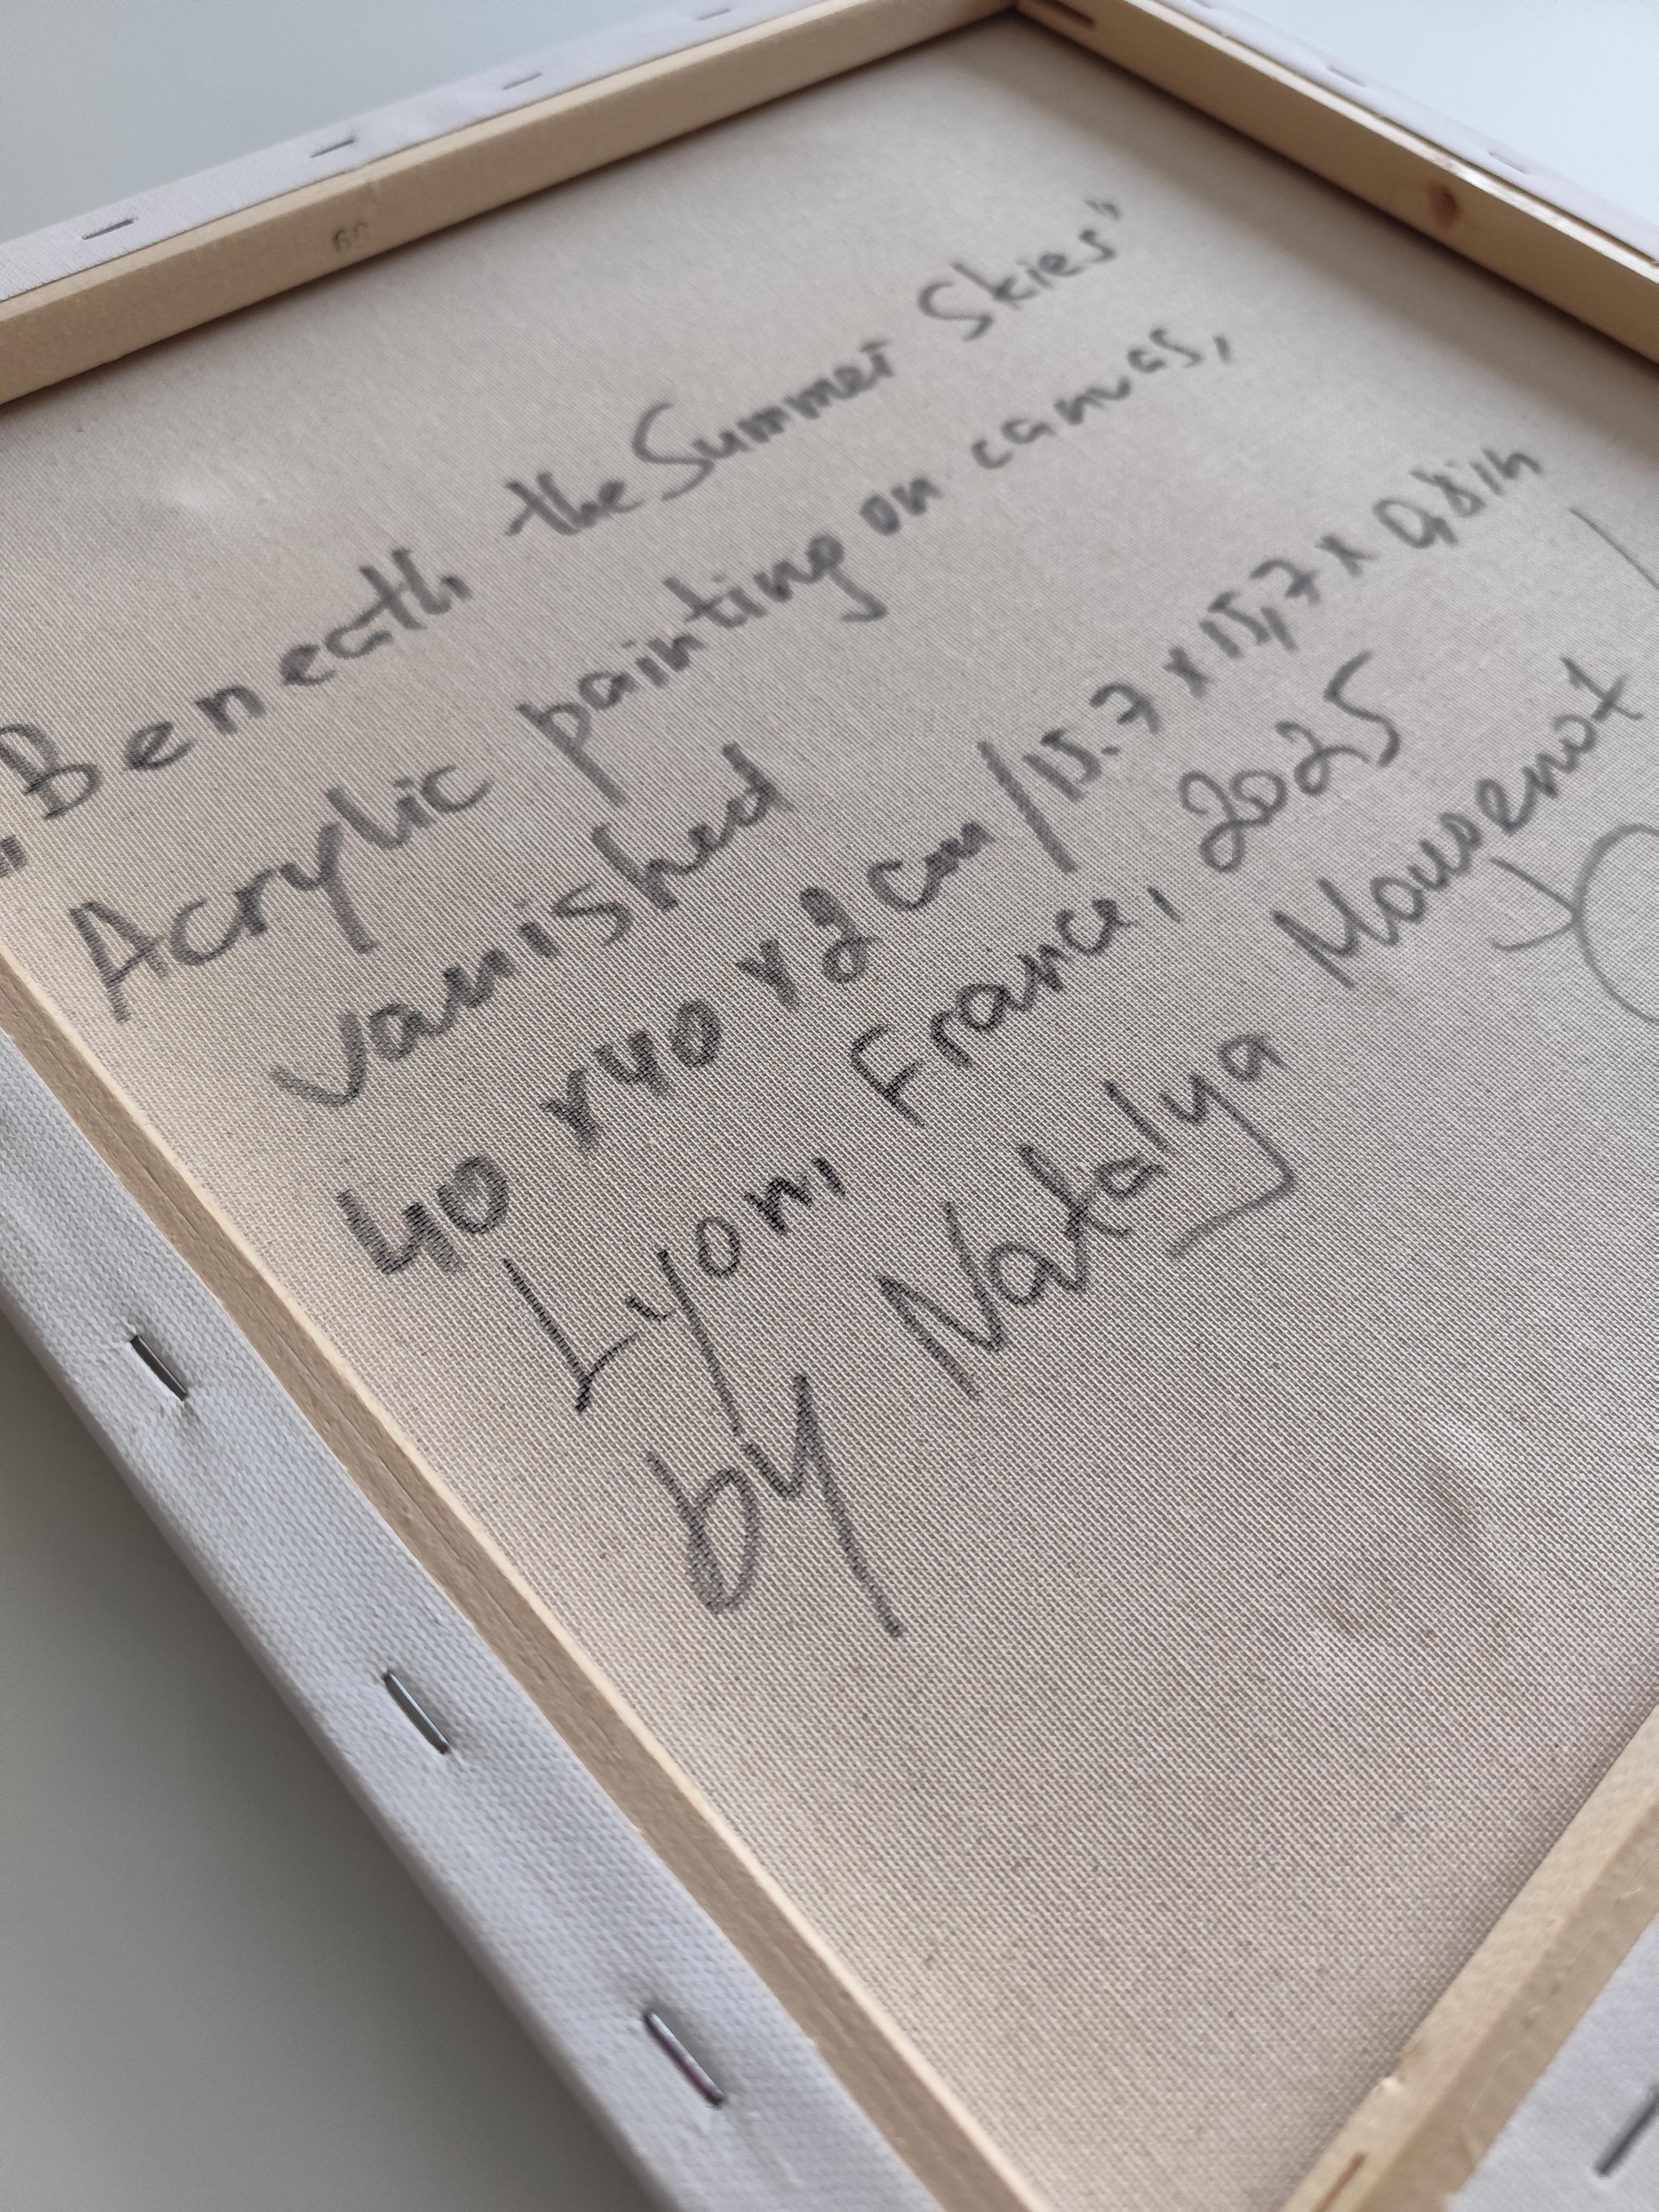 60
„Beneath the Summer Skies"
Acrylic painting on canvas,
vanished
40 x 40 x 2 cm / 15.7 x 15,7 x 0,8 in
Lyon, France, 2025
by Natalya Mougenot